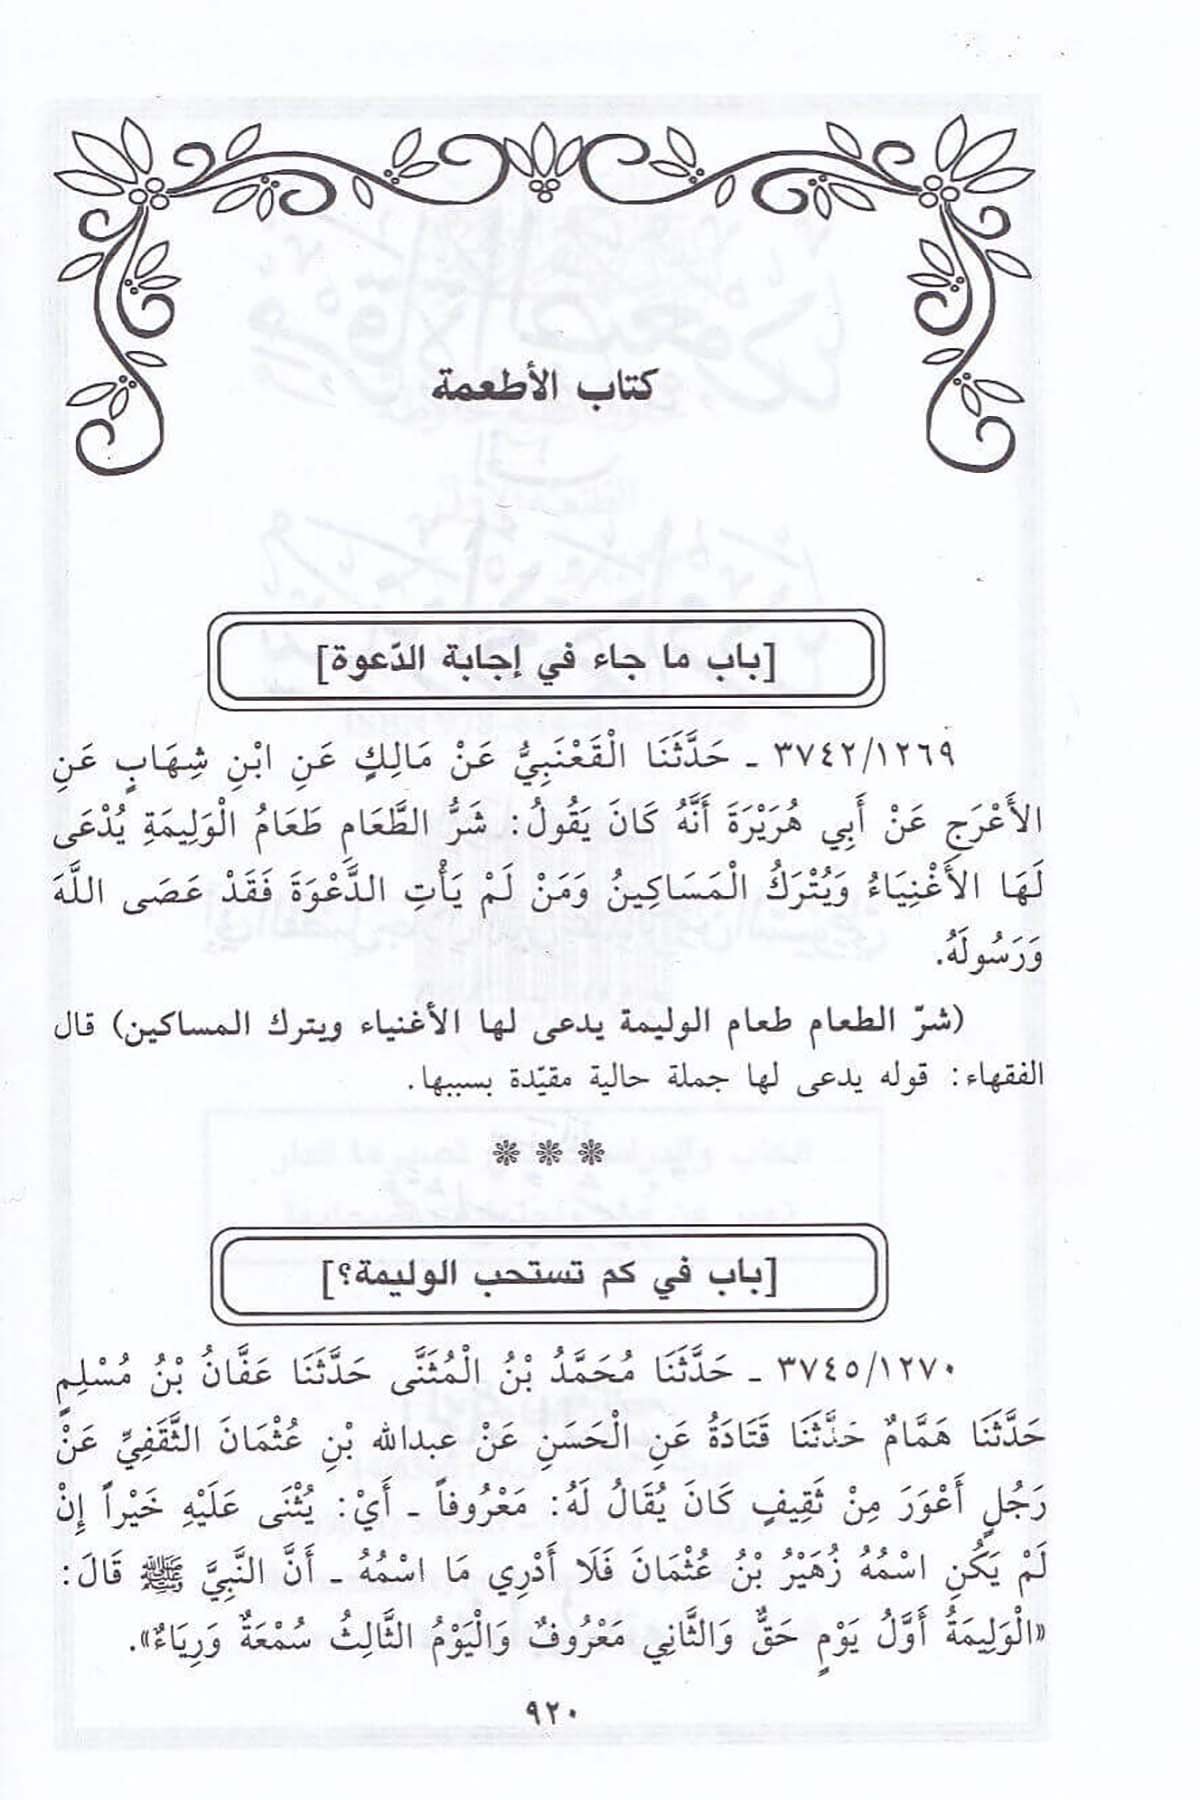 كتاب الأطعمة
[باب ما جاء في إجابة الدّعوة]
٣٧٤٢/١٢٦٩ ـ حَدَّثَنَا الْقَعْنَبِيُّ عَنْ مَالِكٍ عَنِ ابْنِ شِهَابٍ عَنِ
الأَعْرَجِ عَنْ أَبِي هُرَيْرَةَ أَنَّهُ كَانَ يَقُولُ: شَرُّ الطَّعَامِ طَعَامُ الْوَلِيمَةِ يُدْعَى
لَهَا الأَغْنِيَاءُ وَيُتْرَكُ الْمَسَاكِينُ وَمَنْ لَمْ يَأْتِ الدَّعْوَةَ فَقَدْ عَصَى اللَّهَ
وَرَسُولَهُ.
(شرّ الطعام طعام الوليمة يدعى لها الأغنياء ويترك المساكين) قال
الفقهاء: قوله يدعى لها جملة حالية مقيّدة بسببها.
[باب في كم تستحب الوليمة؟]
٣٧٤٥/١٢٧٠ ـ حَدَّثَنَا مُحَمَّدُ بْنُ الْمُثَنَّى حَدَّثَنَا عَفَّانُ بْنُ مُسْلِمٍ
حَدَّثَنَا هَمَّامٌ حَدَّثَنَا قَتَادَةُ عَنِ الْحَسَنِ عَنْ عبدالله بْنِ عُثْمَانَ الثَّقَفِيِّ عَنْ
رَجُلٍ أَعْوَرَ مِنْ ثَقِيفٍ كَانَ يُقَالُ لَهُ: مَعْرُوفاً ـ أَيْ: يُثْنَى عَلَيْهِ خَيْراً إِنْ
لَمْ يَكُنِ اسْمُهُ زُهَيْرُ بْنُ عُثْمَانَ فَلَا أَدْرِي مَا اسْمُهُ ـ أَنَّ النَّبِيَّ ﷺ قَالَ:
«الْوَلِيمَةُ أَوَّلُ يَوْمٍ حَقٌّ وَالثَّانِي مَعْرُوفٌ وَالْيَوْمُ الثَّالِثُ سُمْعَةٌ وَرِيَاءٌ».
٩٢٠